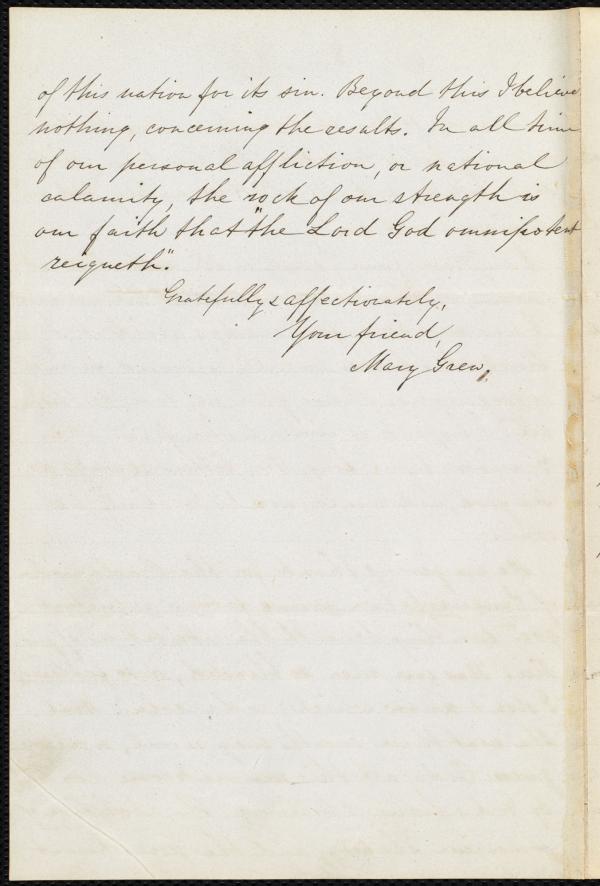 of this nation for its sin. Beyond this I believe
nothing, concerning the results. In all time
of our personal affliction, or national
calamity, the rock of our strength is
our faith that "the Lord God omnipotent
reigneth".
Gratefully & affectionately,
Your friend,
Mary Grew.